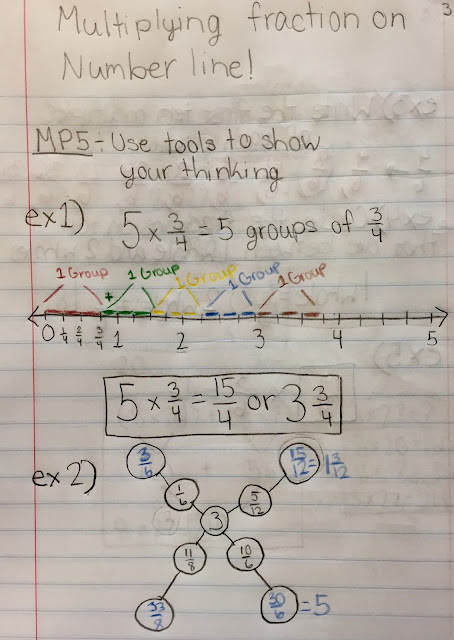 3
Multiplying fraction on
Number line!
MP5- Use tools to show
your thinking
ex1) 5 x 3/4 = 5 groups of 3/4
1 Group 1 Group 1 Group 1 Group 1 Group
+
0 1/4 2/4 3/4 1 2 3 4 5
5 x 3/4 = 15/4 or 3 3/4
ex 2)
3/6 15/12 = 1 3/12
1/6 5/12
3
11/8 10/6
33/8 30/6 = 5